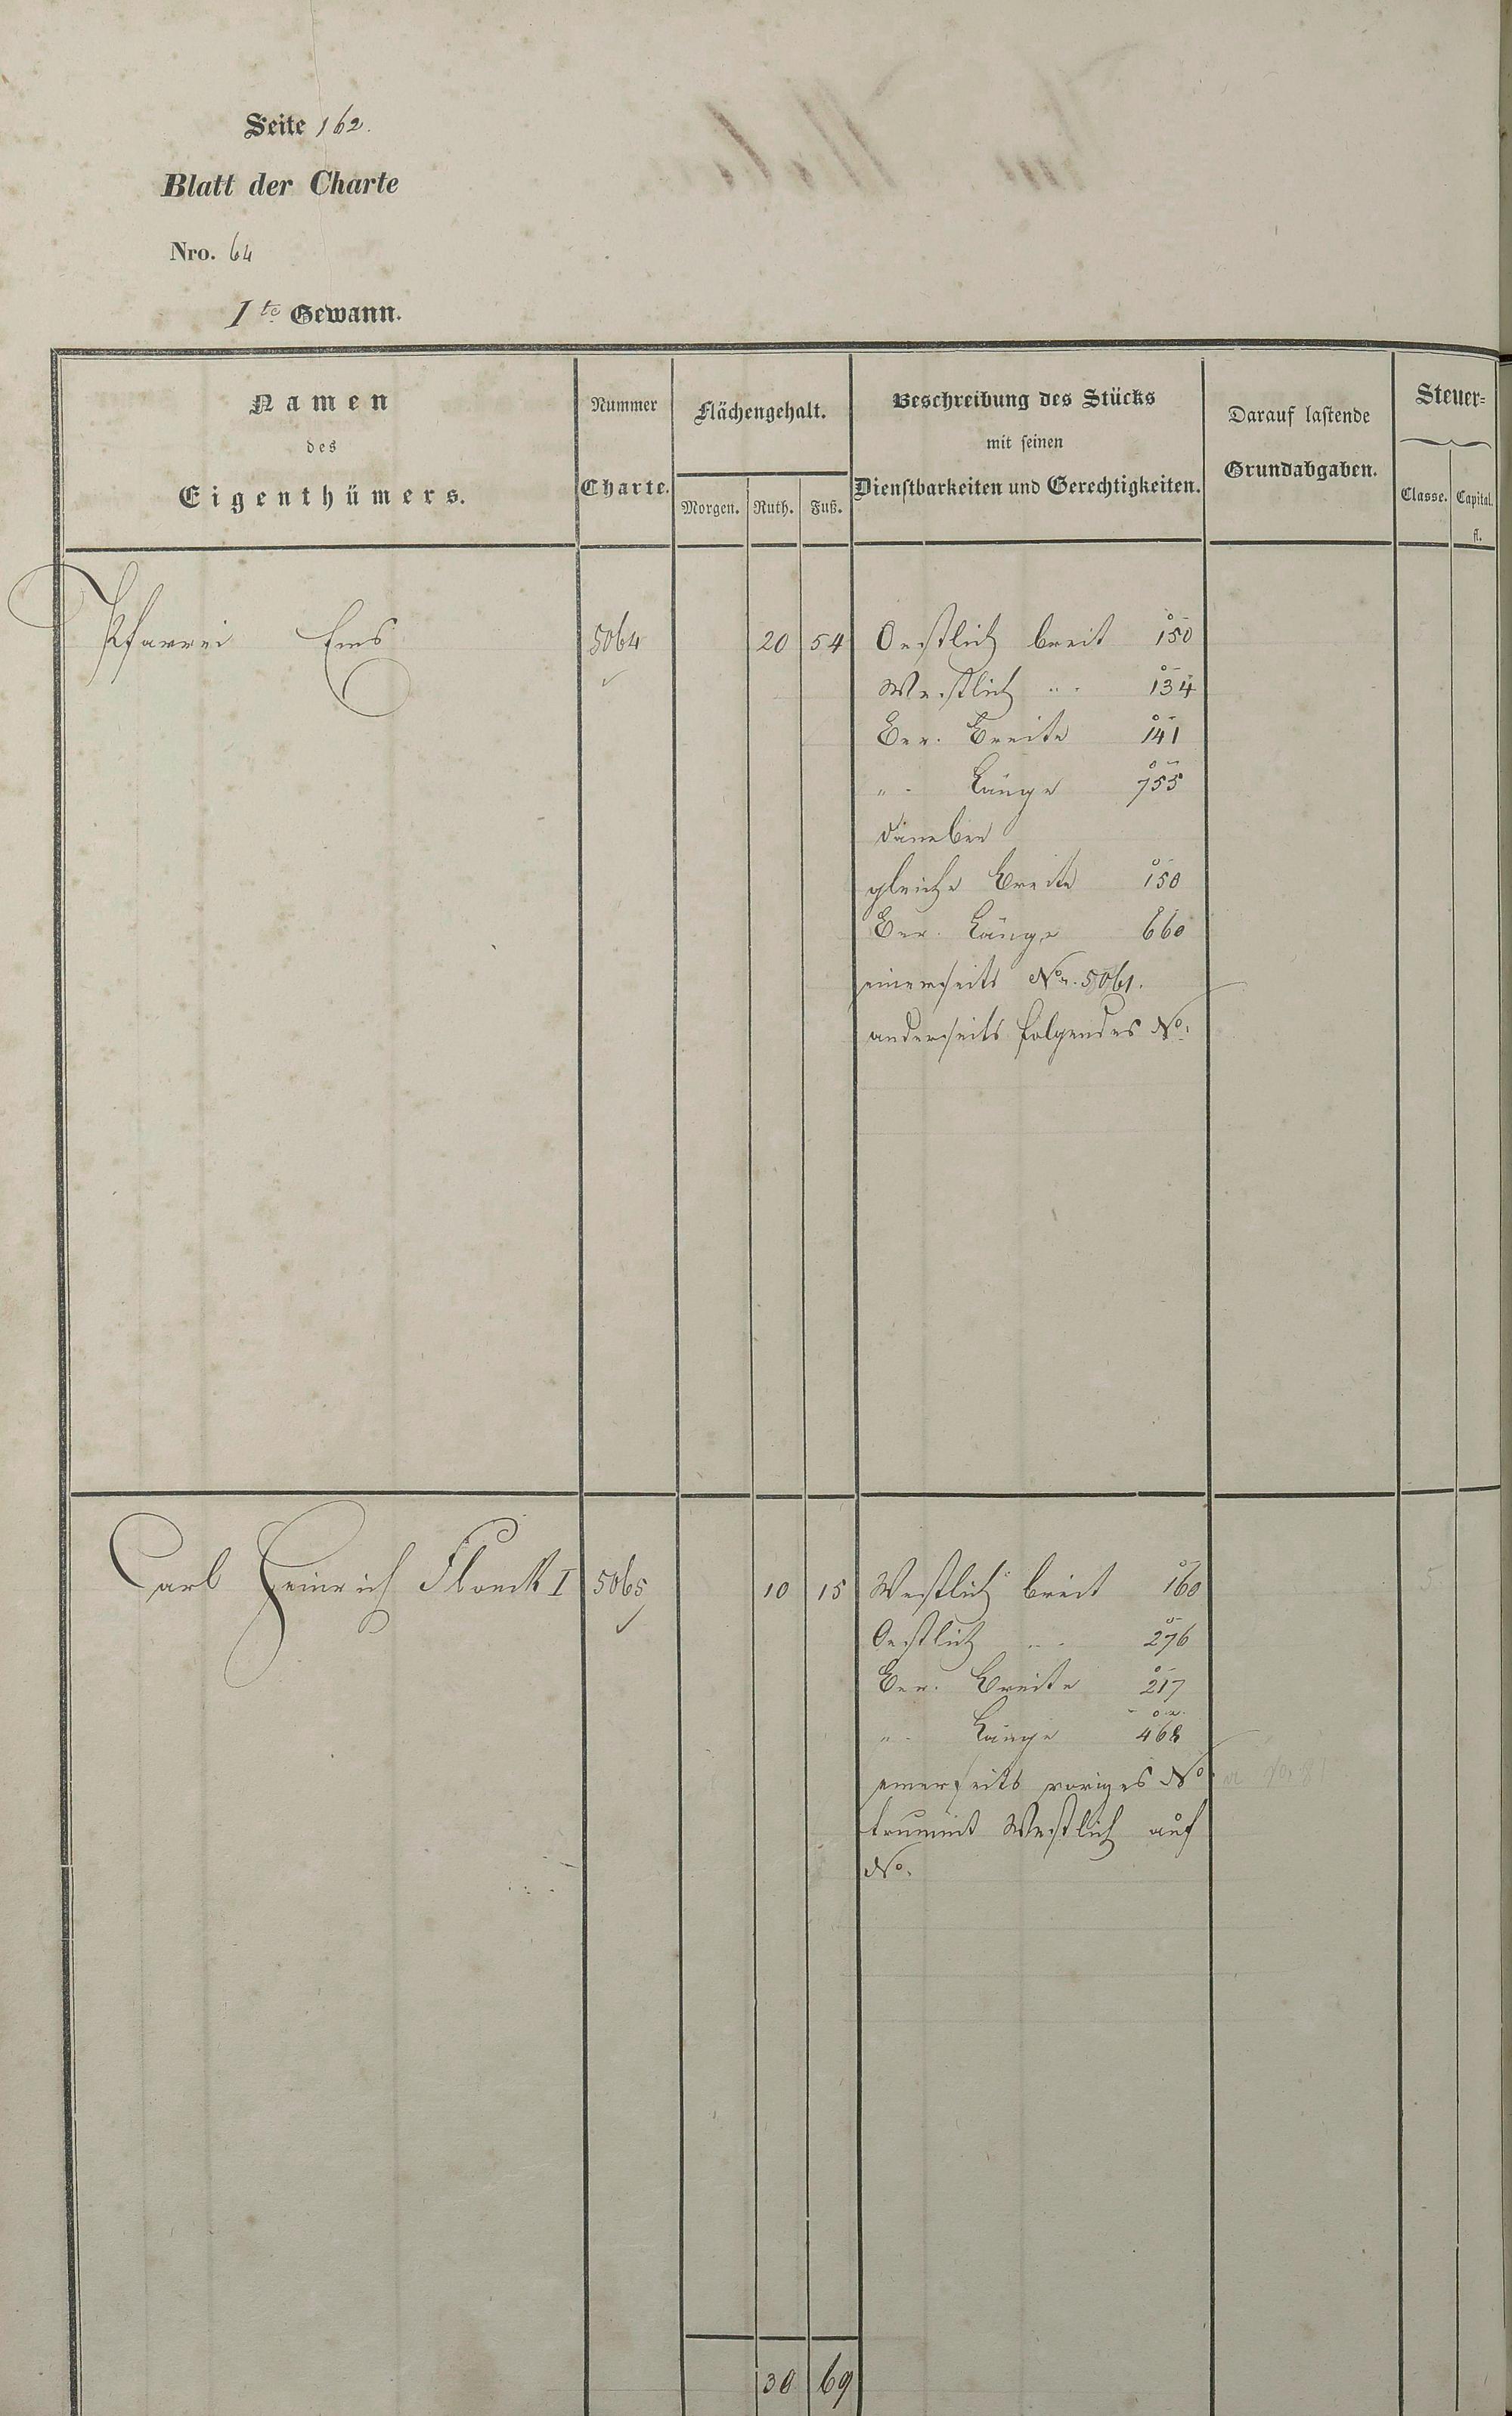 Seite 162.
Blatt der Charte
Nro. 64
1te Gewann.
Namen
des
Eigenthümers.
Nummer
Charte.
Flächengehalt.
Morgen. Ruth. Fuß.
Beschreibung des Stücks
mit seinen
Dienstbarkeiten und Gerechtigkeiten.
Darauf lastende
Grundabgaben.
Steuer=
Classe. Capital.
fl.
Pfarrei Ems 5064 20 54 Oestlich breit 150
Westlich " 134
Ber. Breite 141
" Länge 755
daneben
gleiche Breite 150
Ber. Länge 660
einerseits No. 5061.
anderseits folgendes No.
Carl Heinrich Flöck I 5065 10 15 Westlich breit 160
Oestlich " 276
Ber. Breite 217
" Länge 468
einerseits voriges No.
Westlich auf
No.
30 69